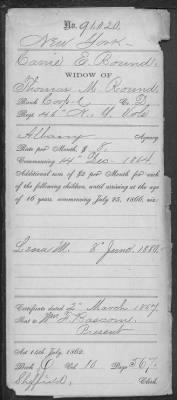 No. 91.020.
New York.
Carrie E. Round.
WIDOW OF
Thomas M. Round
Rank Corp'l Co. D.
Regt. 46" N. Y. Vols
Albany Agency
Rate per Month, $ 8
Commencing 14" Dec. 1864.
Additional sum of $2 per Month for each
of the following children, until arriving at the age
of 16 years, commencing July 25, 1866, viz:
Leora M. 8" June 1880.
Certificate dated 2" March 1867
Sent to Wm. F. Bascom.
Present
Act 14th July, 1862.
Book Vol. 10 Page 567.
Sheffield. Clerk.